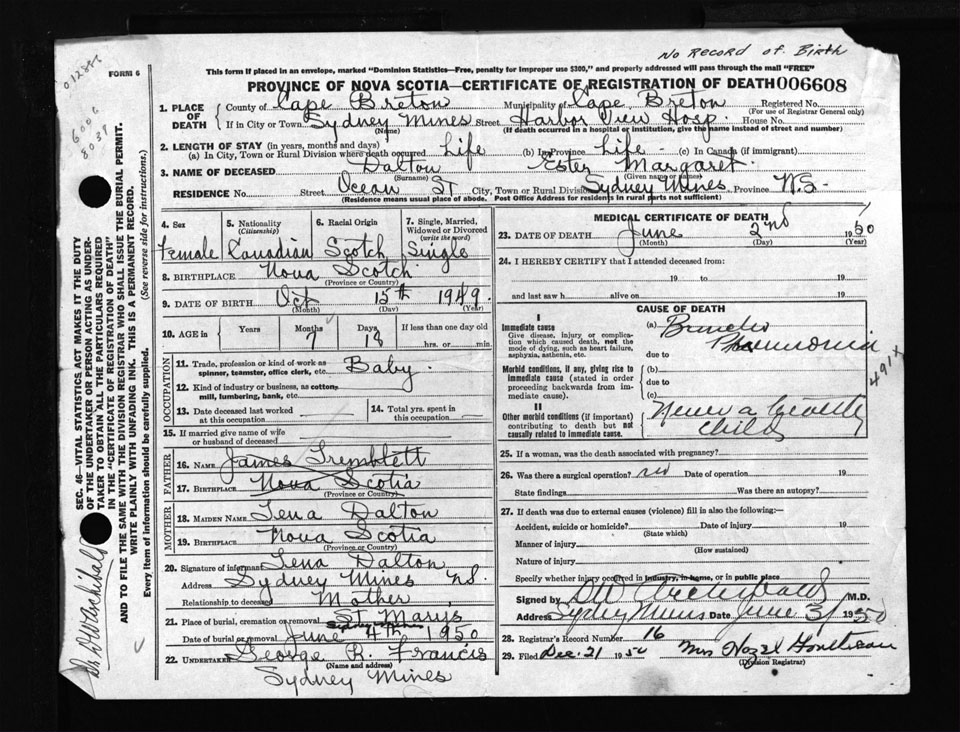 No Record of Birth
012886
FORM 6
6006
8038
This form if placed in an envelope, marked "Dominion Statistics—Free, penalty for improper use $300," and properly addressed will pass through the mail "FREE"
PROVINCE OF NOVA SCOTIA—CERTIFICATE OF REGISTRATION OF DEATH 006608
1. PLACE OF DEATH County of Cape Breton Municipality of Cape Breton Registered No.
(For use of Registrar General only)
If in City or Town Sydney Mines Street Harbor View Hosp. House No.
(Name) (If death occurred in a hospital or institution, give name instead of street and number)
2. LENGTH OF STAY (in years, months and days)
(a) In City, Town or Rural Division where death occurred Life (b) In Province Life (c) In Canada (if immigrant)
3. NAME OF DECEASED Dalton Ester Margaret
(Surname) (Given name or names)
RESIDENCE No. Street Ocean St City, Town or Rural Division Sydney Mines Province N.S.
(Residence means usual place of abode. Post Office Address for residents in rural parts not sufficient)
4. Sex Female
5. Nationality (Citizenship) Canadian
6. Racial Origin Scotch
7. Single, Married, Widowed or Divorced (write the word) Single
8. BIRTHPLACE Nova Scotch
(Province or Country)
9. DATE OF BIRTH Oct 15th 1949
(Month) (Day) (Year)
10. AGE in Years Months 7 Days 18 If less than one day old hrs. or min.
OCCUPATION
11. Trade, profession or kind of work as spinner, teamster, office clerk, etc. Baby
12. Kind of industry or business, as cotton-mill, lumbering, bank, etc.
13. Date deceased last worked at this occupation
14. Total yrs. spent in this occupation
15. If married give name of wife or husband of deceased
FATHER
16. NAME James Tremblett
17. BIRTHPLACE Nova Scotia
(Province or Country)
MOTHER
18. MAIDEN NAME Lena Dalton
19. BIRTHPLACE Nova Scotia
(Province or Country)
20. Signature of informant Lena Dalton
Address Sydney Mines NS.
Relationship to deceased Mother
21. Place of burial, cremation or removal St Mary's
Date of burial or removal June 4th 1950
22. UNDERTAKER George R. Francis
(Name and address)
Sydney Mines
MEDICAL CERTIFICATE OF DEATH
23. DATE OF DEATH June 2nd 1950
(Month) (Day) (Year)
24. I HEREBY CERTIFY that I attended deceased from:
19 to 19
and last saw h alive on 19
CAUSE OF DEATH
I
Immediate cause
Give disease, injury or complication which caused death, not the mode of dying, such as heart failure, asphyxia, asthenia, etc.
(a) Broncho Pneumonia
due to
Morbid conditions, if any, giving rise to immediate cause (stated in order proceeding backwards from immediate cause).
(b)
due to
(c)
491X
II
Other morbid conditions (if important) contributing to death but not causally related to immediate cause.
Never a
Child
25. If a woman, was the death associated with pregnancy?
26. Was there a surgical operation? no Date of operation 19
State findings Was there an autopsy?
27. If death was due to external causes (violence) fill in also the following:—
Accident, suicide or homicide? Date of injury 19
(State which)
Manner of injury
(How sustained)
Nature of injury
Specify whether injury occurred in industry, in home, or in public place
Signed by DW Archibald M.D.
Address Sydney Mines Date June 3/ 1950
28. Registrar's Record Number 16
29. Filed Dec. 21 1950 Mrs Hazel
(Division Registrar)
SEC. 46—VITAL STATISTICS ACT MAKES IT THE DUTY
OF THE UNDERTAKER OR PERSON ACTING AS UNDERTAKER TO OBTAIN ALL THE PARTICULARS REQUIRED
IN THE "CERTIFICATE OF REGISTRATION OF DEATH"
AND TO FILE THE SAME WITH THE DIVISION REGISTRAR WHO SHALL ISSUE THE BURIAL PERMIT.
WRITE PLAINLY WITH UNFADING INK. THIS IS A PERMANENT RECORD.
Every item of information should be carefully supplied. (See reverse side for instructions.)
Dr DW Archibald